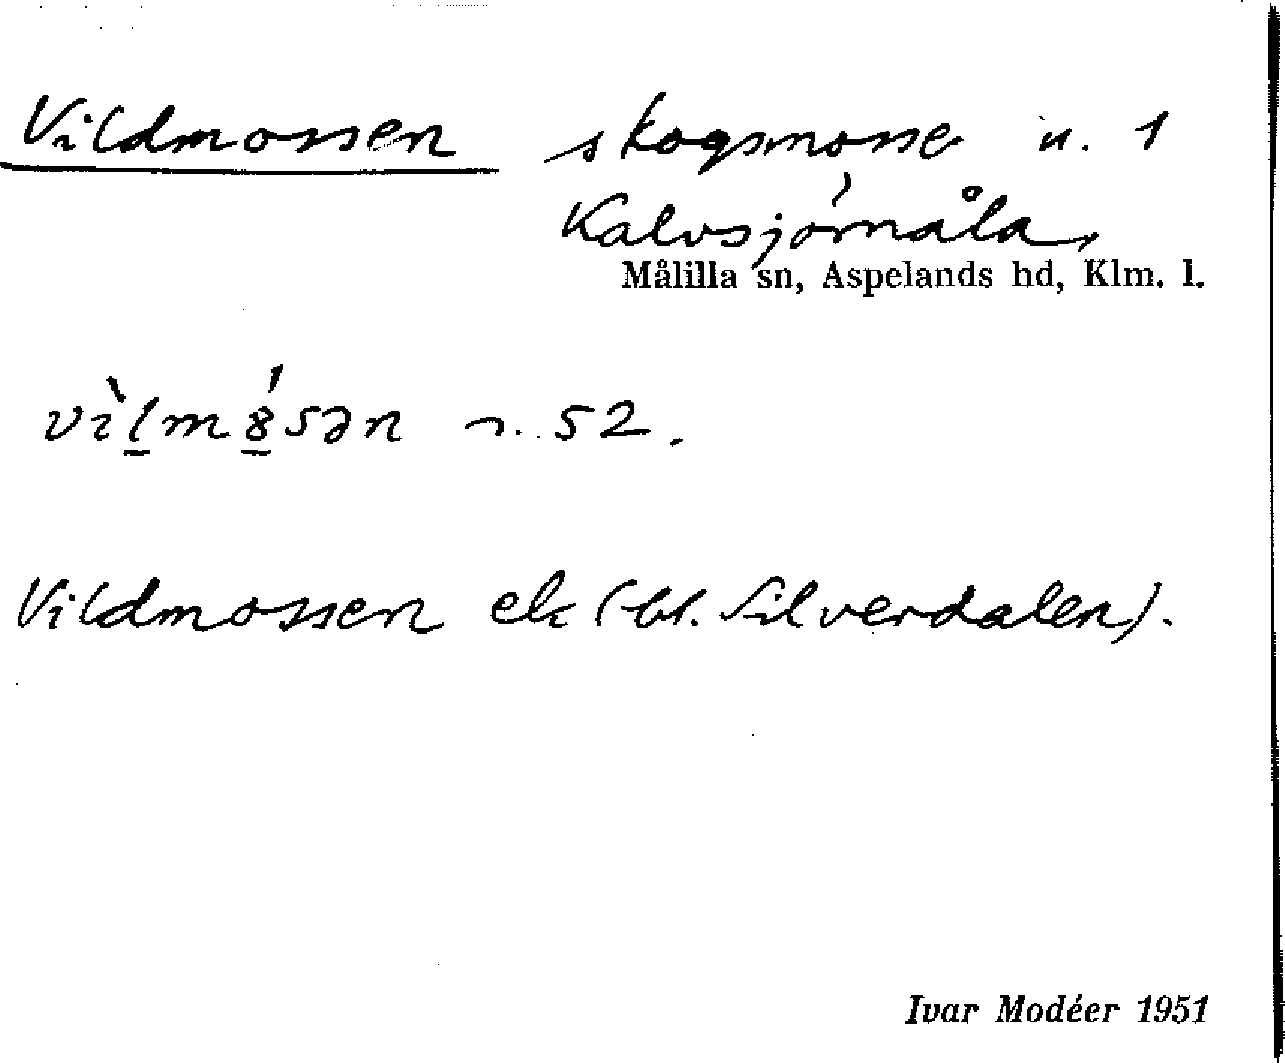 Vildmossen skogsmosse u. 1
Kalvsjömåla,
Målilla sn, Aspelands hd, Klm. l.
vìlmó̱sən n. 52.
Vildmossen ek (bl. Silverdalen).
Ivar Modéer 1951